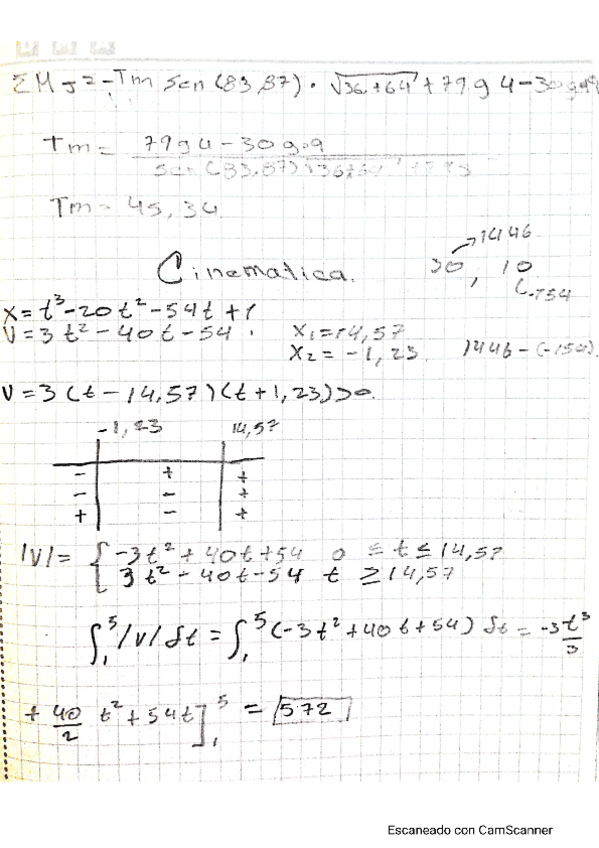 ΣM J = -Tm sen(83,87) · √36+64 + 79 g 4 - 30 g·9
Tm = 79 g 4 - 30 g·9
sen(83,87)
Tm = 45,34
→1446
Cinematica. 30, 10
x = t³ - 20t² - 54t + 1
V = 3t² - 40t - 54. x₁ = 14,57
x₂ = -1,23. 1446 - (-150).
V = 3(t - 14,57)(t + 1,23) > 0.
-1,23 14,57
- + +
- - +
+ - +
|V| = { -3t² + 40t + 54 0 ≤ t ≤ 14,57
3t² - 40t - 54 t ≥ 14,57
∫₁⁵ |V| δt = ∫₁⁵ (-3t² + 40t + 54) δt = -3 t³/3
+ 40/2 t² + 54t]₁⁵ = 572
Escaneado con CamScanner